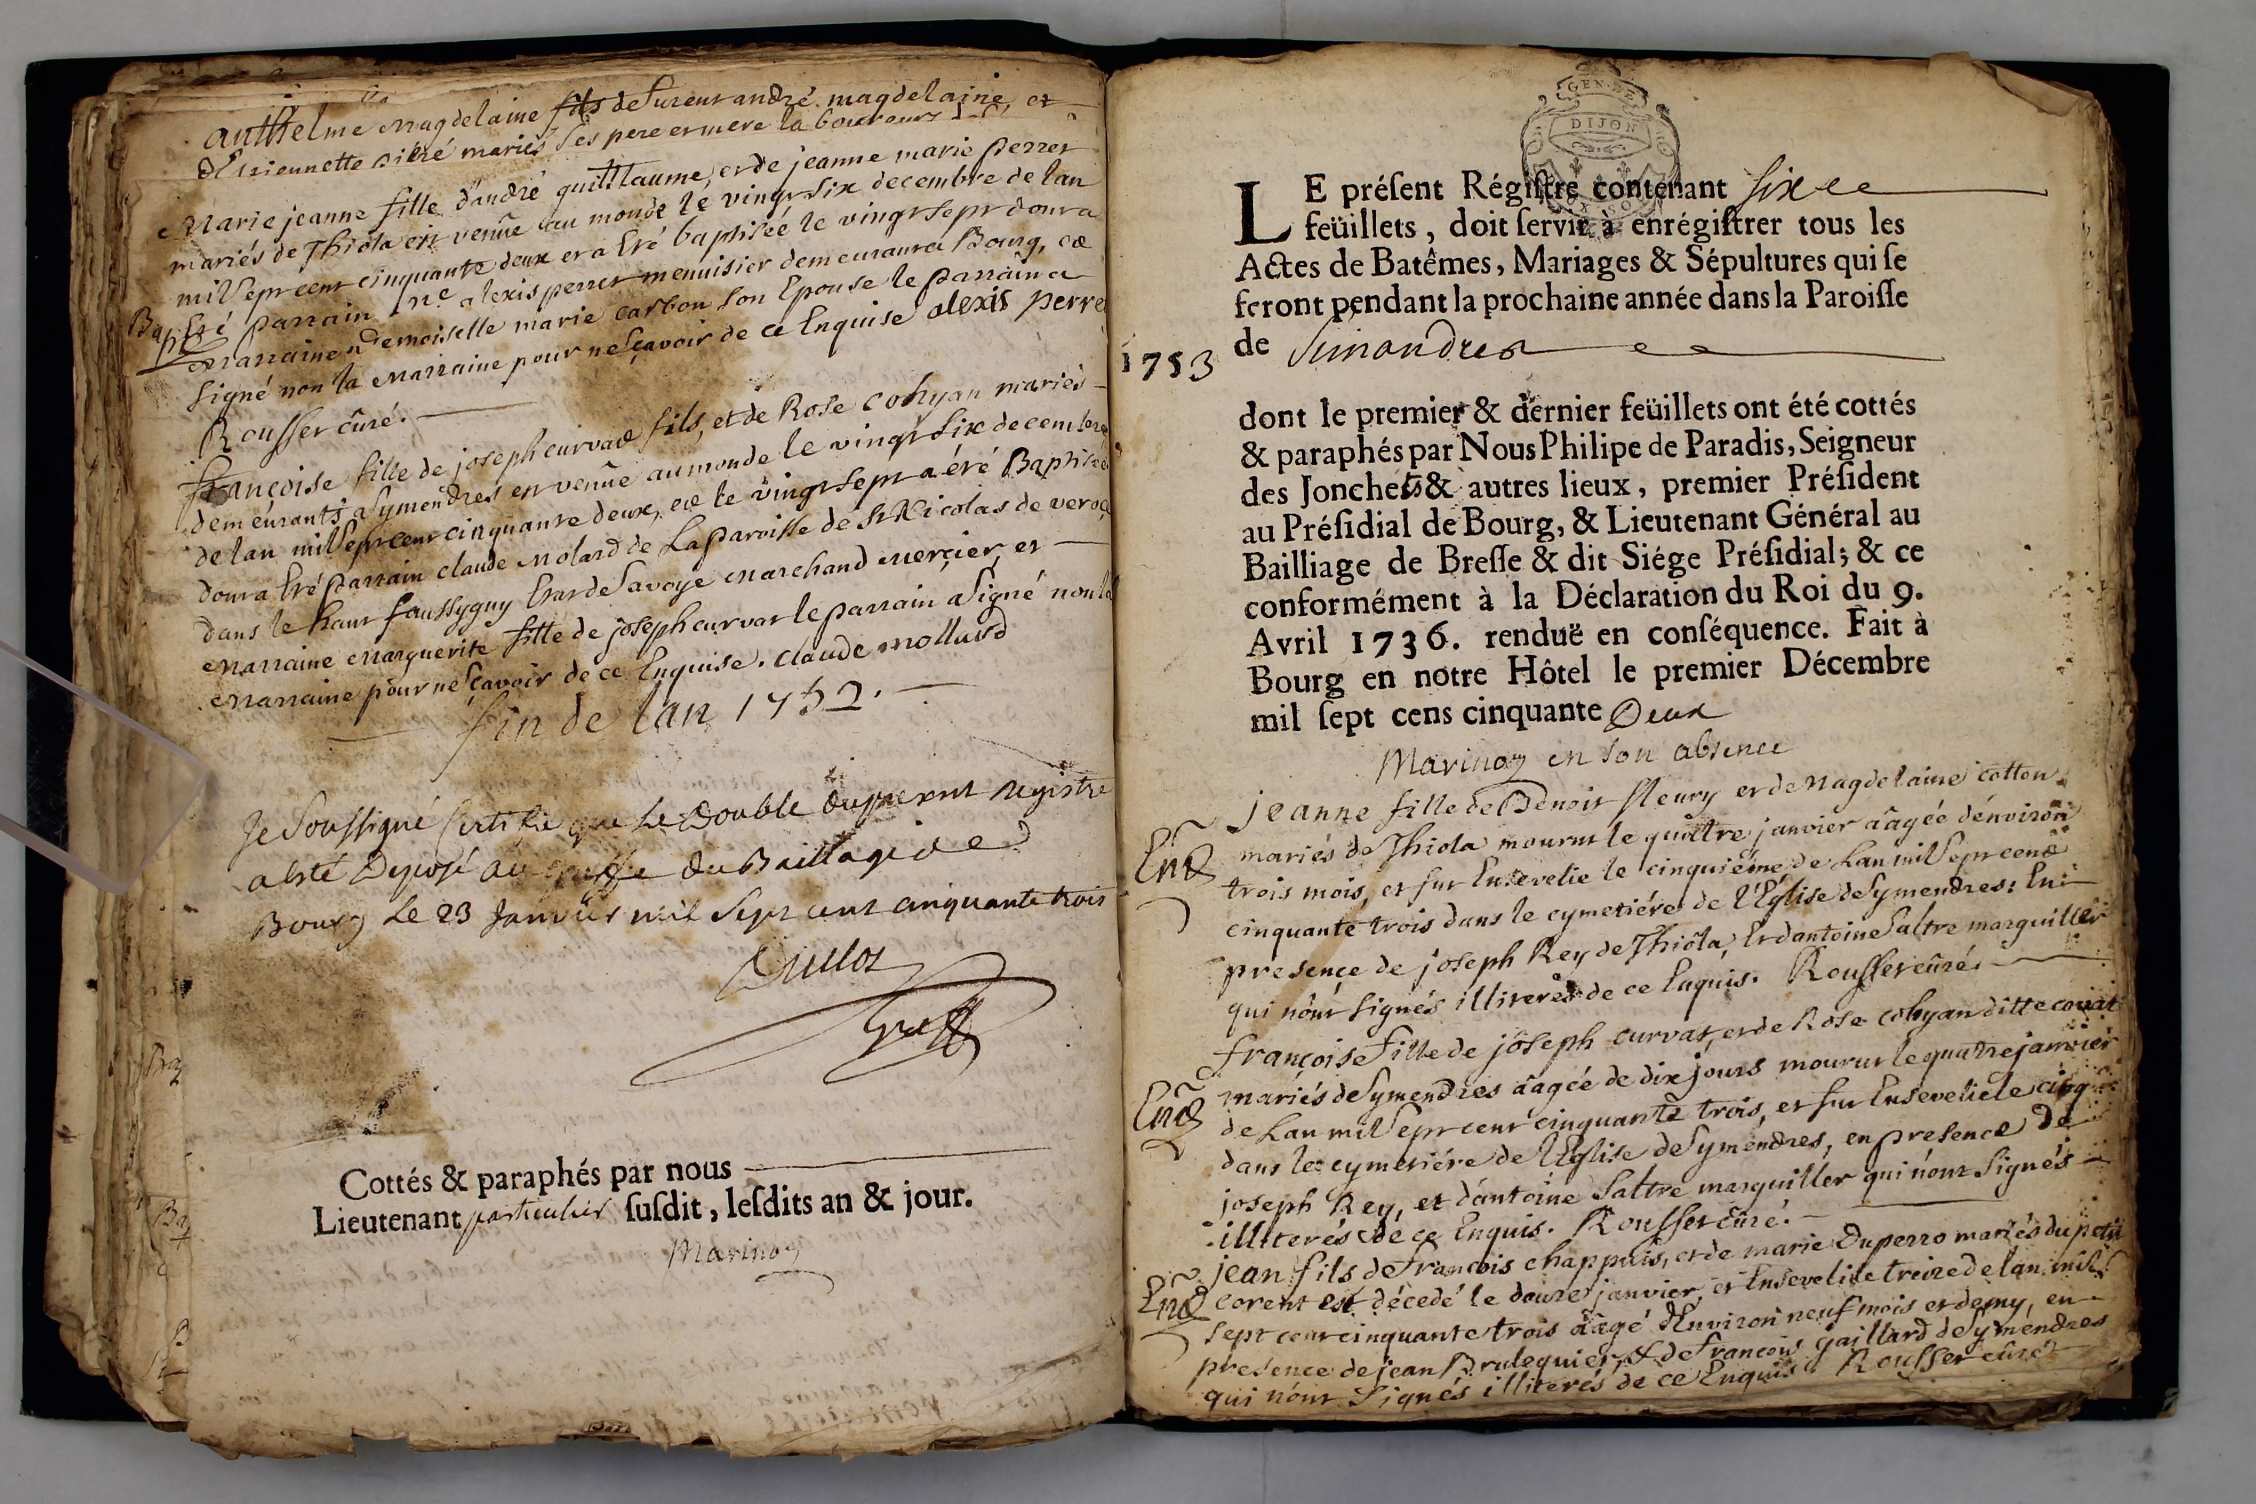 anthelme magdelaine fils de fureut andré magdelaine, et
d'Etiennette pitré mariés ses pere et mere laboureurs
Marie jeanne fille d'andré guilliaume, et de jeanne marie perret
mariés de Thiola est venüe au monde le vingt six decembre de lan
mil sept cent cinquante deux et a été baptisée le vingt sept dont a
Bapt
été parrain me alexis perret menuisier demeurant a Bourg, et
marraine demoiselle marie carbon son Epouse le parrain a
signé non la marraine pour ne sçavoir de ce Enquise alexis perret
Rousset cûré.
françoise fille de joseph curvat fils, et de Rose cohyan mariés
demeurants a Symendres est venüe au monde le vingt six decembre
de lan mil sept cent cinquante deux, et le vingt sept a été Baptisée
dont a Eté parrain claude molard de La paroisse de St Nicolas de veroce
dans le haut faussygny Etat de Savoye marchand mercier, et
marraine marguerite fille de joseph curvat le parrain a signé non la
marraine pour ne sçavoir de ce Enquise. claude mollard
fin de lan 1752.
Je Soussigné Certifie que Le Double du present registre
a Esté Deposé au greffe du Baillage de
Bourg Le 23 Janvier mil Sept cent cinquante trois
Greff
Cottés & paraphés par nous
Lieutenant particulier ſuſdit, leſdits an & jour.
Marinon
GEN. DE
DIJON
LE préſent Régiſtre contenant six
feüillets, doit ſervir à enrégiſtrer tous les
Actes de Batêmes, Mariages & Sépultures qui ſe
feront pendant la prochaine année dans la Paroiſſe
1753
de Simandres
dont le premier & dernier feüillets ont été cottés
& paraphés par Nous Philipe de Paradis, Seigneur
des Jonchets & autres lieux, premier Préſident
au Préſidial de Bourg, & Lieutenant Général au
Bailliage de Breſſe & dit Siége Préſidial; & ce
conformément à la Déclaration du Roi du 9.
Avril 1736. renduë en conſéquence. Fait à
Bourg en notre Hôtel le premier Décembre
mil ſept cens cinquante Deux
Marinon en son absence
jeanne fille de Benoit fleury et de Magdelaine cotton
Ent
mariés de Thiola mourut le quattre janvier aâgée d'environ
trois mois, et fut Ensevelie le cinquiéme de Lan mil Sept cent
cinquante trois dans le cymetiére de l'Eglise de Symendres: En
presence de joseph Rey de Thiola, Et d'antoine Saltre marguiller
qui n'ont signés illiterés de ce Enquis. Rousset cûré.
françoise fille de joseph curvat, et de Rose cohyan ditte covat
Ent
mariés de Symendres aâgée de dix jours mourut le quatre janvier
de Lan mil Sept cent cinquante trois, et fut Ensevelie le cinq
dans le cymetiére de l'Eglise de Symendres, en presence de
joseph Rey, et d'antoine Saltre marguiller qui n'ont Signés
illiterés de ce Enquis. Rousset cûré.
jean fils de francois chappuis, et de marie Duperro mariés du petit
Ent
corent est décedé le douze janvier, et Enseveli le treize de lan mil
sept cent cinquante trois aâgé d'Environ neuf mois et demy, en
presence de jean Brulequier, & de francois Gaillard de Symendres
qui n'ont Signés illiterés de ce Enquis Rousset cûré